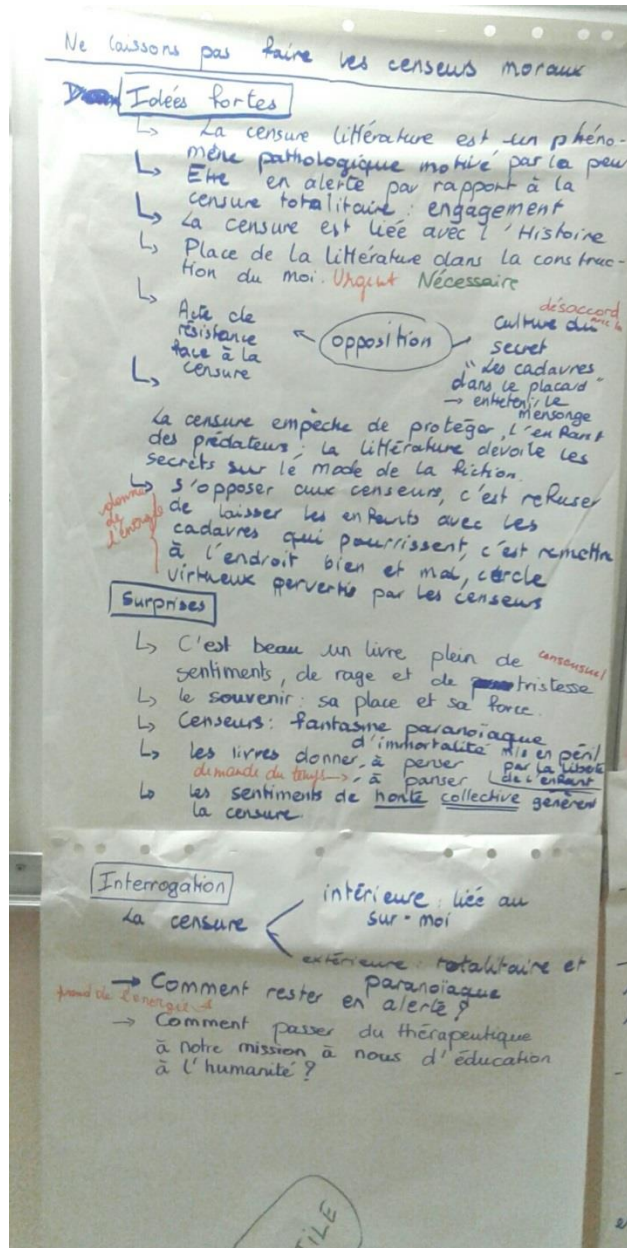 Ne laissons pas faire les censeurs moraux
Idées fortes
↳ La censure littérature est un phéno-
mène pathologique motivé par la peur
↳ Etre en alerte par rapport à la
censure totalitaire : engagement
↳ La censure est liée avec l'Histoire
↳ Place de la littérature dans la construc-
tion du moi. Urgent Nécessaire
↳ Acte de
résistance
face à la
censure
opposition
désaccord
avec la
culture du
secret
"Les cadavres
dans le placard"
→ entretenir le
mensonge
↳ La censure empêche de protéger l'enfant
des prédateurs ; la littérature dévoile les
secrets sur le mode de la fiction.
↳ s'opposer aux censeurs, c'est refuser
de laisser les enfants avec les
cadavres qui pourrissent, c'est remettre
à l'endroit bien et mal, cercle
virtueux pervertis par les censeurs
donne
de
l'énergie
Surprises
↳ C'est beau un livre plein de consensuel
sentiments, de rage et de tristesse
↳ le souvenir : sa place et sa force.
↳ Censeurs : fantasme paranoïaque
d'immortalité mis en péril
par la liberté
de l'enfant
↳ les livres donner à penser
demande du temps → à panser
↳ les sentiments de honte collective génèrent
la censure.
Interrogation
La censure
intérieure : liée au
sur-moi
extérieure : totalitaire et
paranoïaque
→ Comment rester en alerte ?
prend de l'énergie
→ Comment passer du thérapeutique
à notre mission à nous d'éducation
à l'humanité ?
TILE